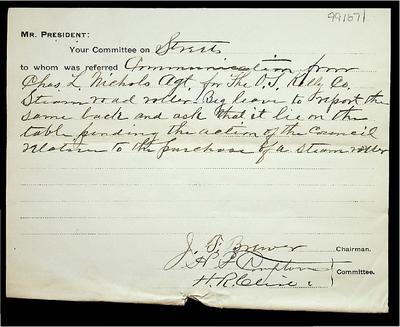 991071
MR. PRESIDENT:
Your Committee on Streets
to whom was referred Communication from
Chas L. Nichols Agt. for The O.S. Kelly Co.
Steam road roller. Beg leave to report the
same back and ask that it lie on the
table pending the action of the Council
relative to the purchase of a Steam roller
J. T. Brewer Chairman.
Committee.
H. R. Cline